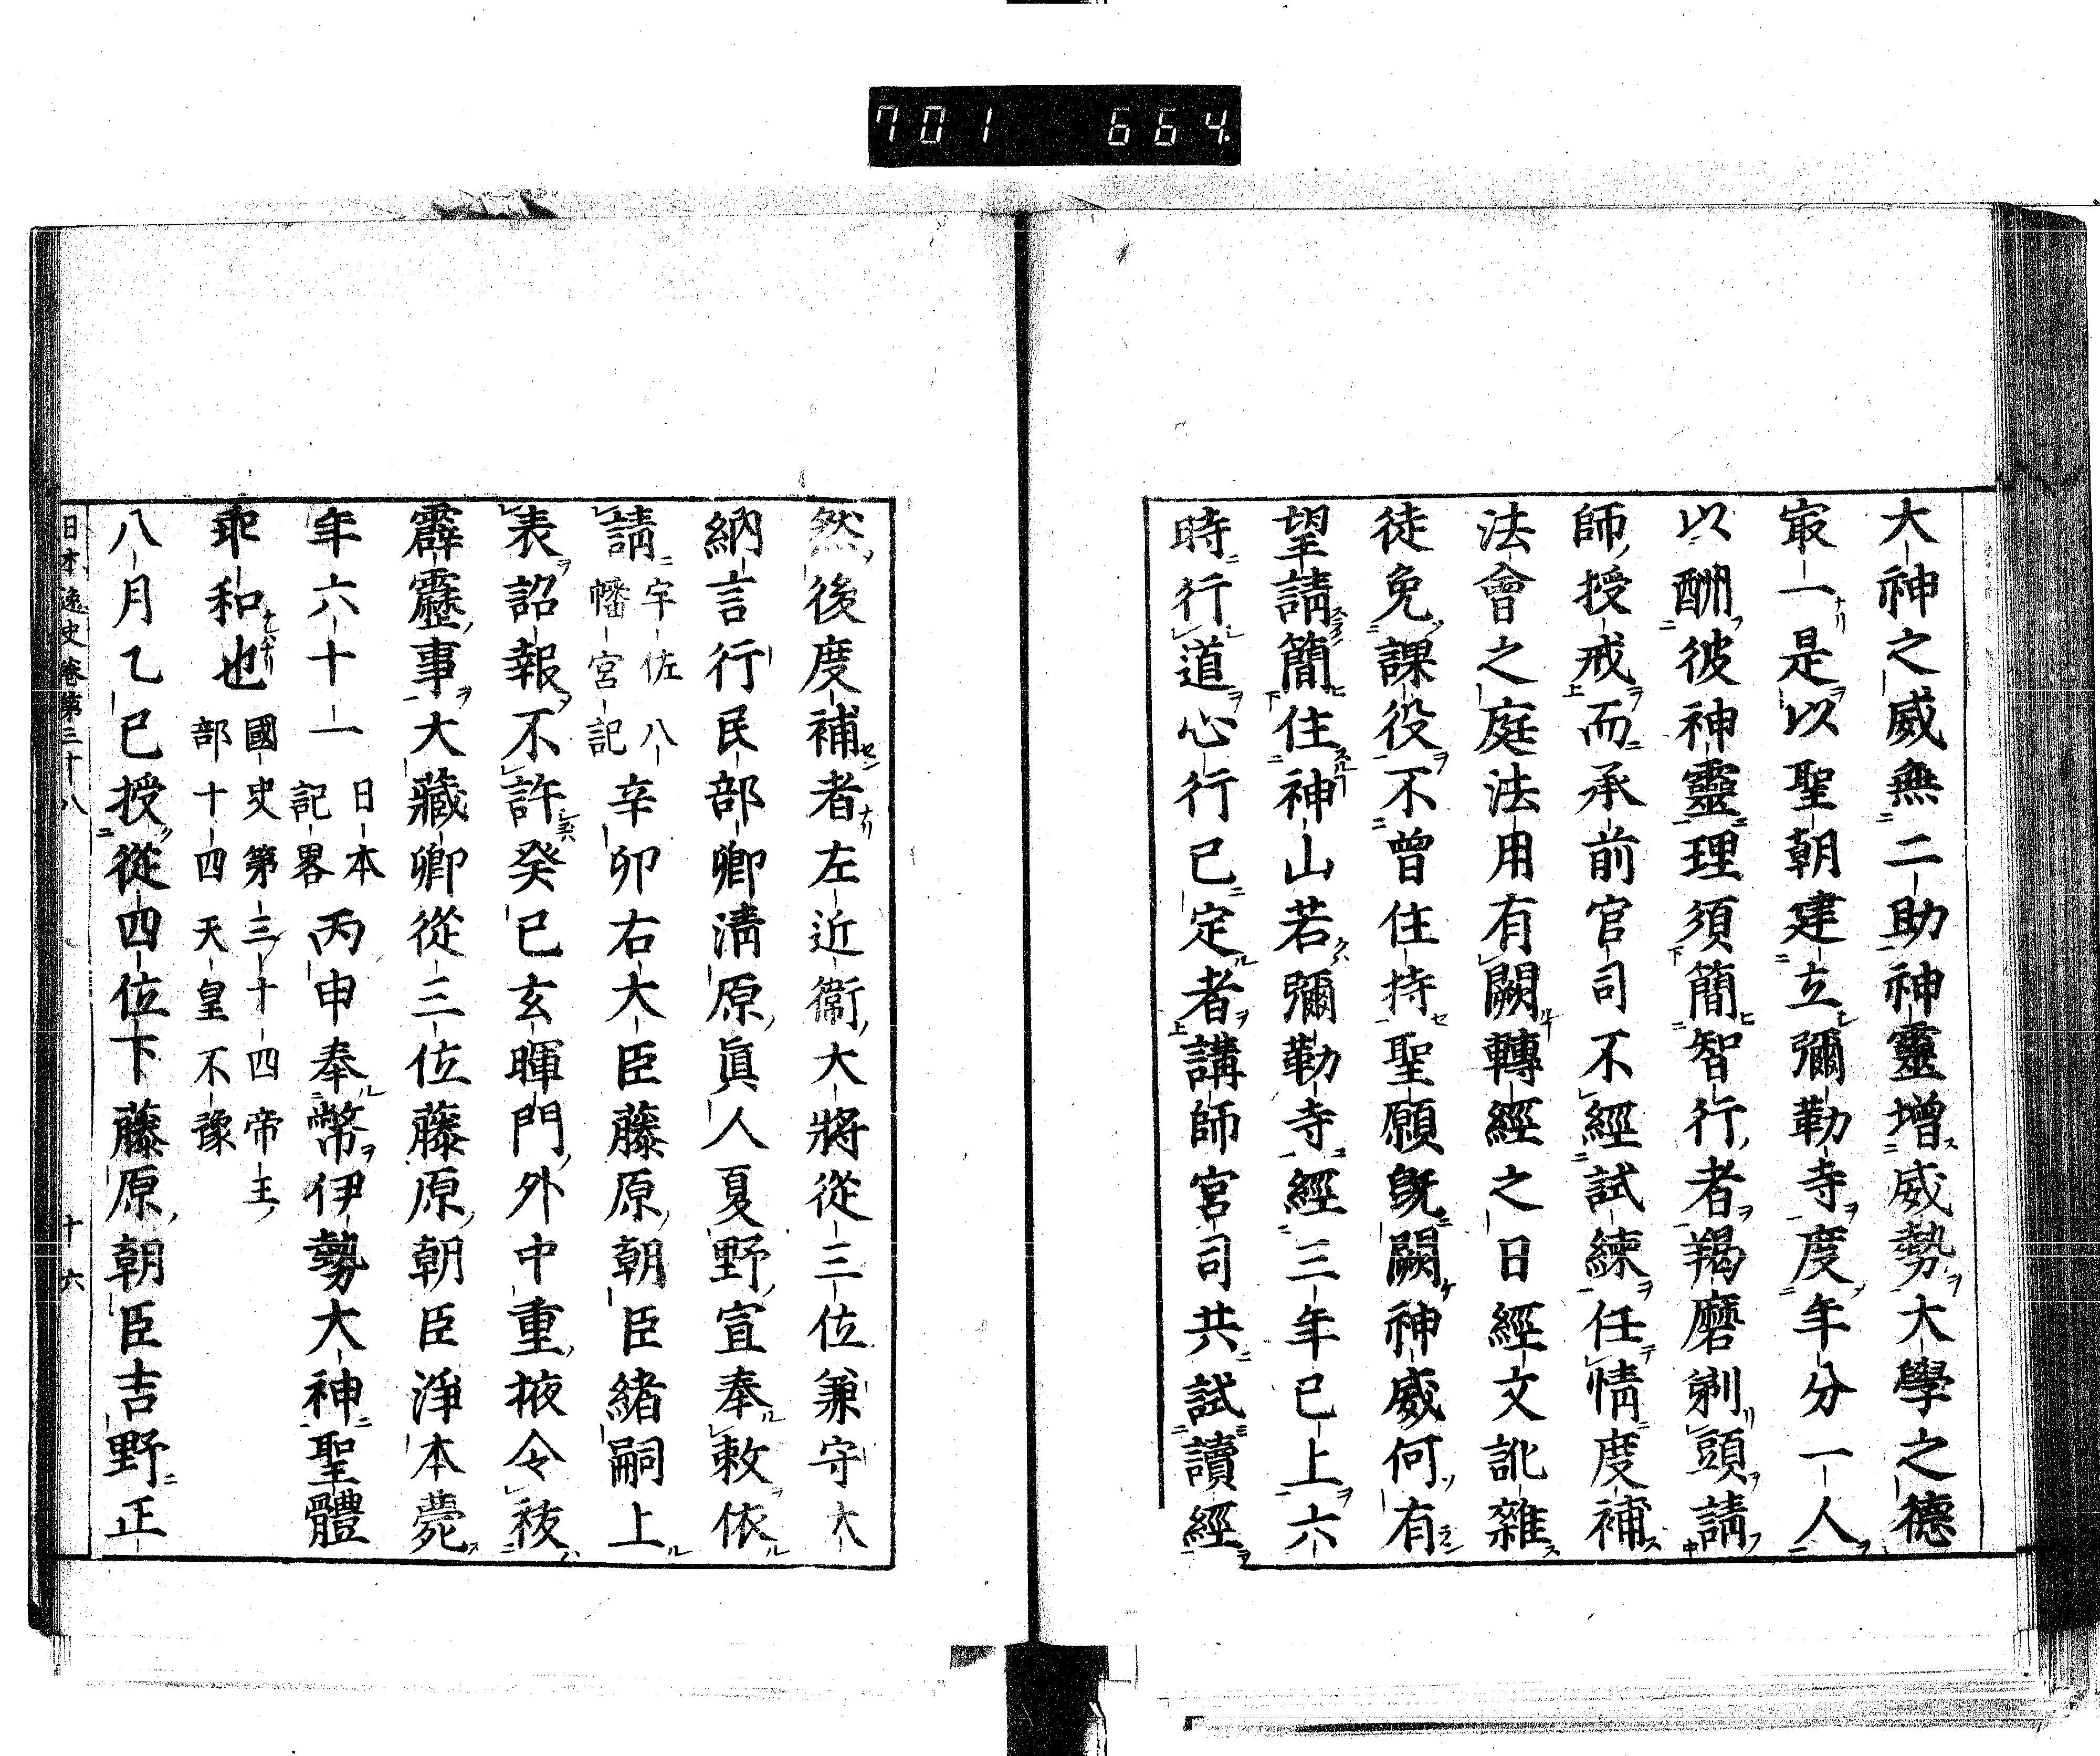 701 664
大神之威無二助神靈增威勢大學之德
冣一是以聖朝建立彌勒寺度年分一人
以酬彼神靈理須簡智行者羯磨剃頭請
師授戒而承前官司不經試練任情度補
法會之庭法用有闕轉經之日經文訛雜
徒免課役不曾住持聖願旣闕神威何有
望請簡住神山若彌勒寺經三年已上六
時行道心行已定者講師宮司共試讀經
然後度補者左近衞大將從三位兼守大
納言行民部卿淸原眞人夏野宣奉敕依
請宇佐八幡宮記辛卯右大臣藤原朝臣緖嗣上
表詔報不許癸巳玄暉門外中重掖令祓
霹靂事大藏卿從三位藤原朝臣淨本薨
年六十一日本記畧丙申奉幣伊勢大神聖體
乖和也國史第三十四帝王部十四天皇不豫
八月乙巳授從四位下藤原朝臣吉野正
日本逸史卷第三十八 十六